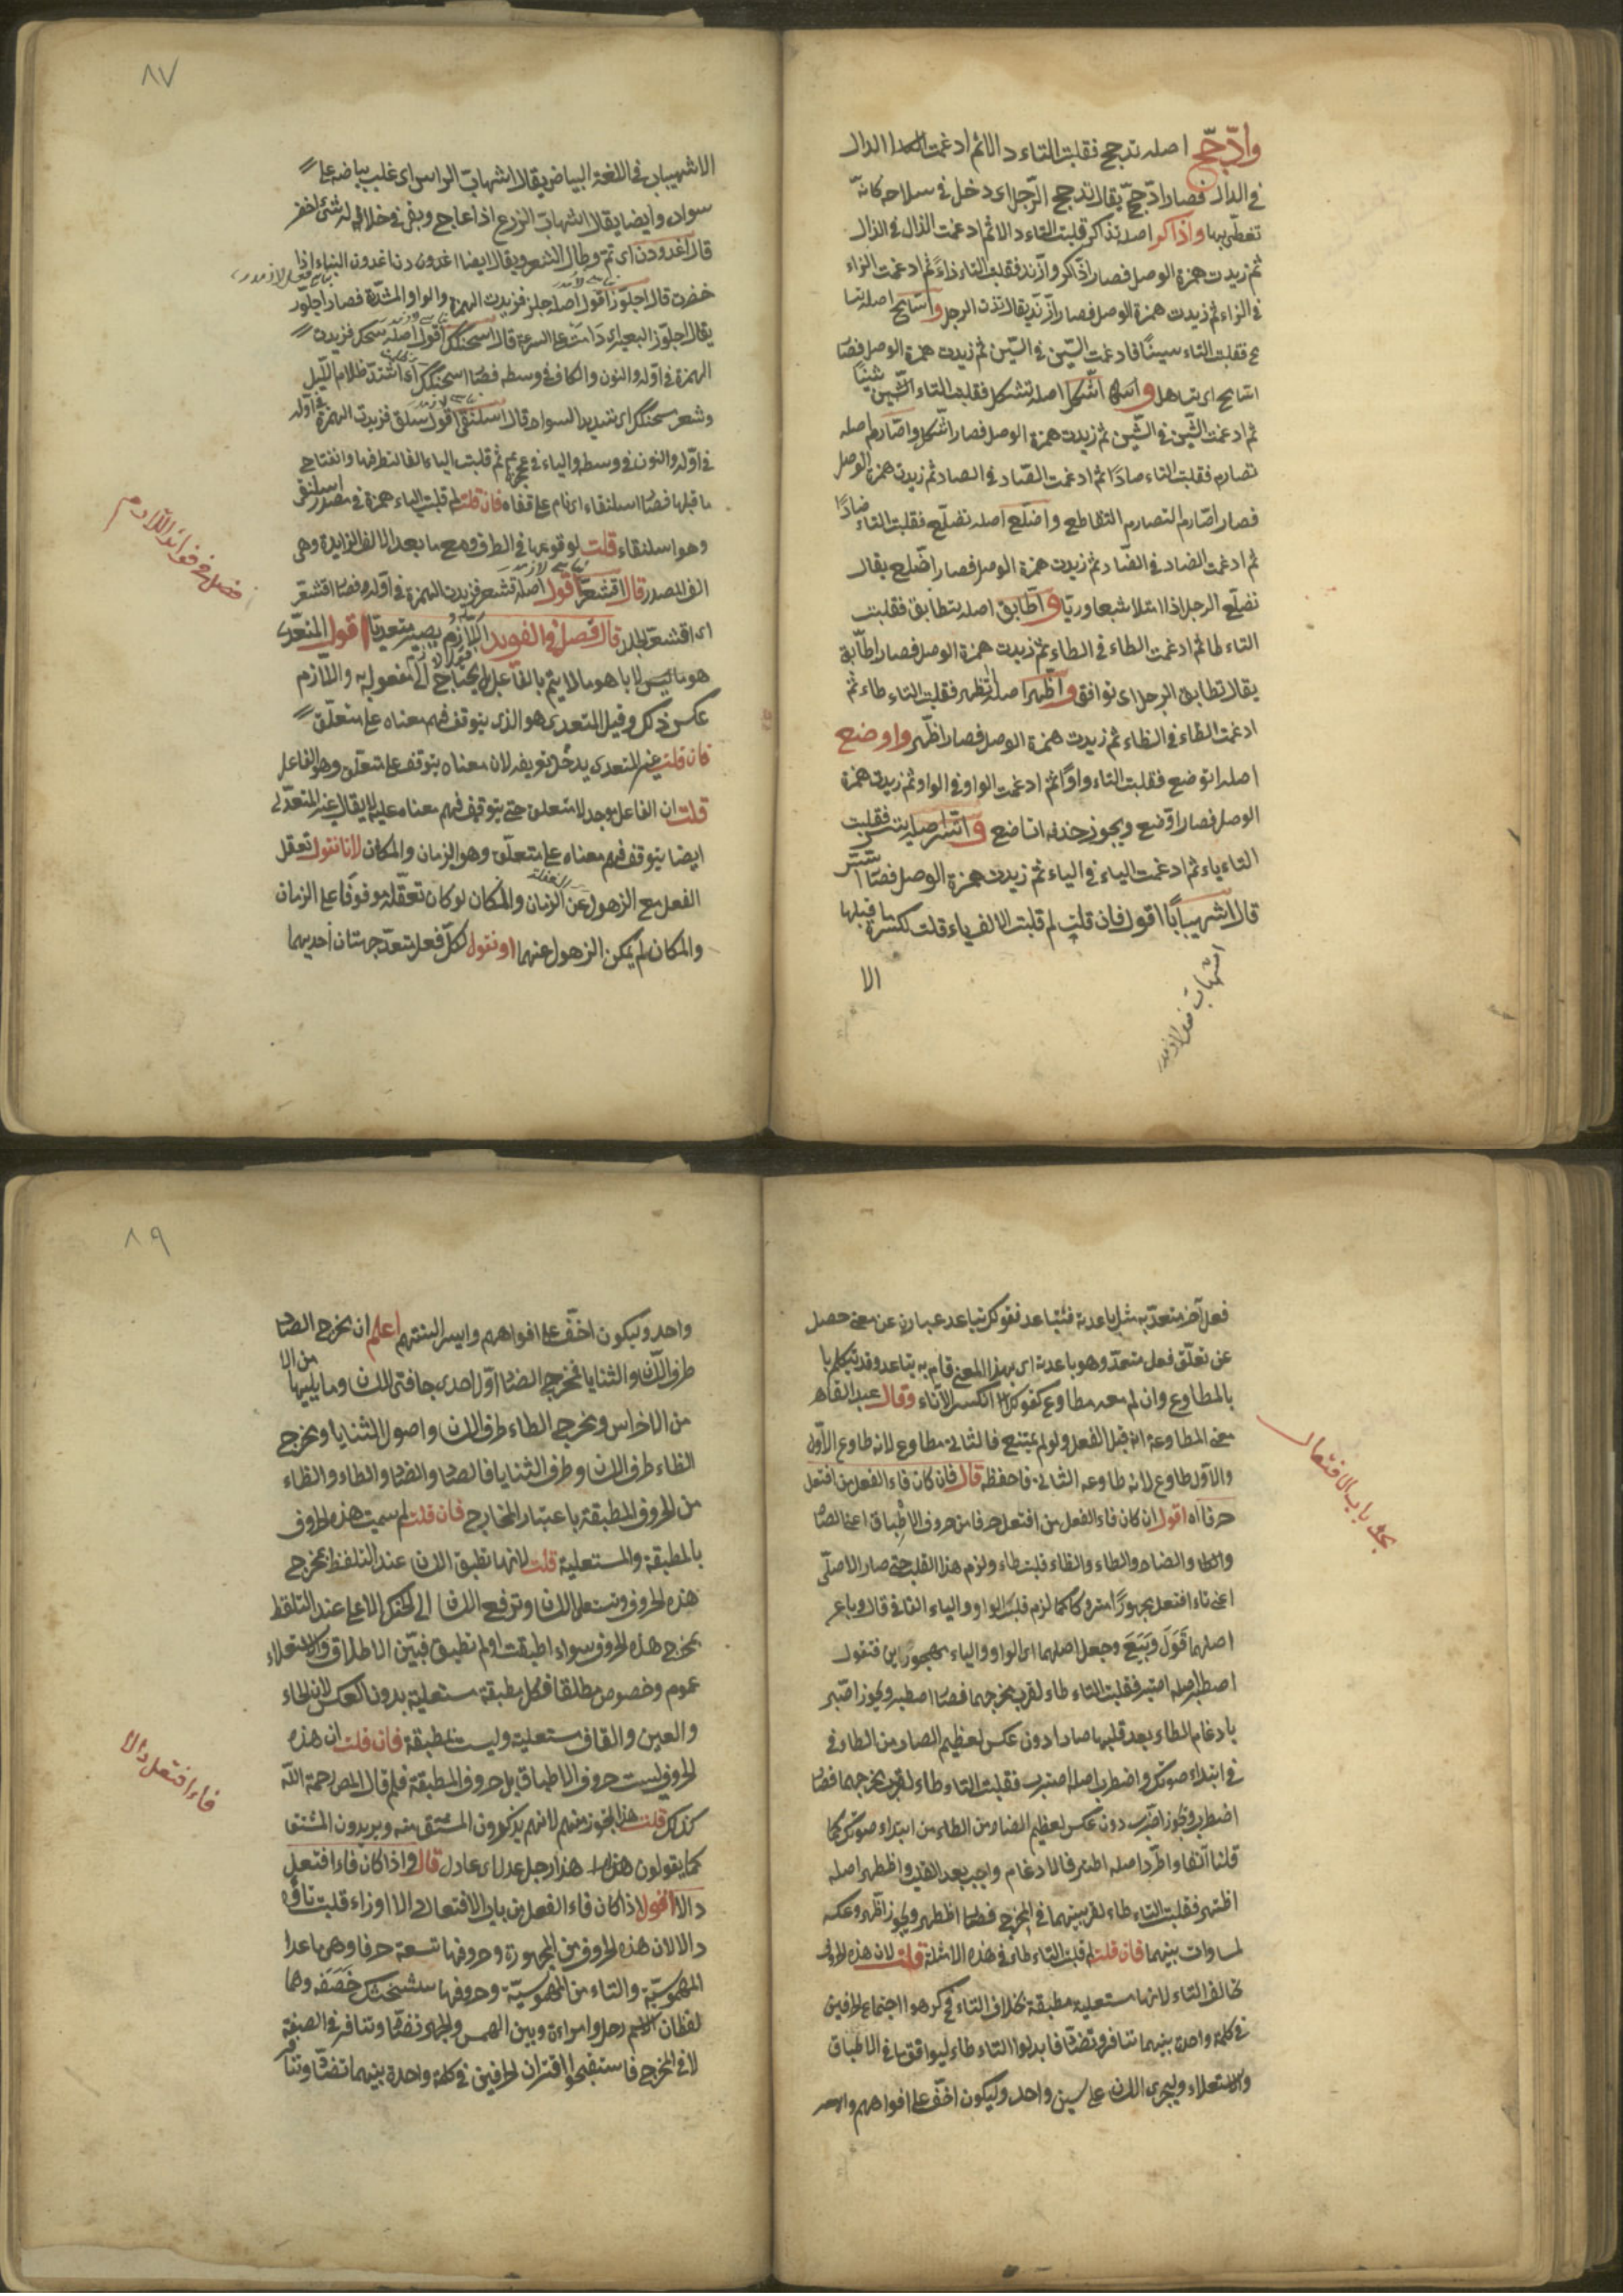 وادّجّج اصله تدجج فقلبت التاء دالا ثم ادغمت الدال
في الدال فصار ادّجّج يقال تدجج الرّجل اى دخل في سلاحه كانّه
تغطّى بها واذّاكر اصله تذاكر قلبت التاء دالا ثم ادغمت الذال في الذال
ثم زيدت همزة الوصل فصار اذّاكر وازّيد فقلبت التاء زاءً ثم ادغمت الزاء
في الزاء ثم زيدت همزة الوصل فصار ازّيّد يقال تزيّن الرجل واسّامح اصله تسا
مح فقلبت التاء سينًا فادغمت السّين في السّين ثم زيدت همزة الوصل فصار
اسّامح اى تساهل واشّكل اصله تشكل فقلبت التاء الشّين شينًا
ثم ادغمت الشّين في الشّين ثم زيدت همزة الوصل فصار اشّكل واصّارم اصله
تصارم فقلبت التاء صادًا ثم ادغمت الصّاد في الصاد ثم زيدت همزة الوصل
فصار اصّارم التصارم التقاطع واضّلّع اصله تضلّع فقلبت التاء ضادًا
ثم ادغمت الضاد في الضّاد ثم زيدت همزة الوصل فصار اضّلّع يقال
تضلّع الرجل اذا امتلا شبعا وريّا واطّابق اصله تطابق فقلبت
التاء طا ثم ادغمت الطاء في الطاء ثم زيدت همزة الوصل فصار اطّابق
يقال تطابق الرجل اى توافق واظّهّر اصله تظهر فقلبت التاء ظاء ثم
ادغمت الظاء في الظاء ثم زيدت همزة الوصل فصار اظّهّر واوضع
اصله توضع فقلبت التاء واوًا ثم ادغمت الواو في الواو ثم زيدت همزة
الوصل فصار اوّضع ويجوز واتّسر اصله يتسر فقلبت
التاء ياء ثم ادغمت الياء في الياء ثم زيدت همزة الوصل فصار
قال اشهيبابًا اقول فان قلت لم قلبت الالف ياء قلت لكسرة ما قبلها
اشهابّ فعل لازمدر
الا
٨٧
الاشهيباب في اللغة البياض يقال اشهابّ الراس اى غلب بياضه على
سواده وايضا يقال اشهابّ الزرع اذا هاج وبقى في خلاله شئ اخضر
قال اغدودن اى تمّ وطال الشعر ويقال ايضا اغدودن النبات اذا
خضرت قال اجلوّز اقول اصله جلز فزيدت الهمزة والواو المشدّدة فصار اجلوّز
يقال اجلوّز البعير اى دامت على السرعة قال اسحنكك اقول اصله سحك فزيدت
الهمزة في اوّله والنون والكاف في وسطه فصار اسحنكك اى اشتدّ ظلام اللّيل
وشعر سحنكك اى شديد السواد قال اسلنقى اقول سلق فزيدت الهمزة في اوّله
في اوّله والنون في وسطه والياء في عجزه ثم قلبت الياء الفا لتطرفها وانفتاح
ما قبلها فصار اسلنقاء اى نام على قفاه فان قلت لم قلبت الياء همزة في مصدر اسلنقى
وهو اسلنقاء قلت لوقوعها في الطرف مع ما بعد الالف الزايدة وهى
الف المصدر قال اقشعرّ اقول اصله قشعر فزيدت الهمزة في اوله فصار اقشعرّ
اى اقشعرّ الجلد قال فصل في الفوائد اللازم يصير متعديا اقول المتعدى
هو ما لا يتمّ بالفاعل بل يحتاج الى مفعول به واللازم
عكس ذلك وقيل المتعدى هو الذى يتوقف فهم معناه على متعلّق
فان قلت غير المتعدى يدخل بتعريفه لان معناه يتوقف على متعلق وهو الفاعل
قلت ان الفاعل يوجد لا متعلق حتى يتوقف فهم معناه عليه لا يقال غير المتعدى
ايضا يتوقف فهم معناه على متعلّق وهو الزمان والمكان لانا نقول تعقل
الفعل مع الذهول عن الزمان والمكان لو كان تعقّله موقوفا على الزمان
والمكان لم يمكن الذهول عنهما او نقول لكلّ فعل متعدّ جهتان احديهما
فصل في فوائد اللازم
فعل آخر متعدّ به مثل باعدته فتباعد فقولك تباعد عبارة عن معنى حصل
عن تعلّق فعل متعدّ وهو باعدته اى بهذا المعنى قام به تباعد وقد يتكلم با
بالمطاوع وان لم معه مطاوع كقولك انكسر الاناء وقال عبد القاهر
معنى المطاوعة انه قبل الفعل ولم يمتنع فالثانى مطاوع لانه طاوع الاوّل
والاول مطاوع لانه طاوعه الثانى فاحفظه قال فان كان فاء الفعل من افتعل
حرفا اه اقول ان كان فاء الفعل من افتعل حرفا من حروف الاطباق اعنى الصاد
والضاد والطاء والظاء قلبت طاء ولزم هذا القلب حتى صار الاصلى
اعنى تاء افتعل مهجورًا متروكا كما لزم قلب الواو والياء الفا في قال وباع
اصلهما قَوَلَ وبَيَعَ وجعل اصلهما اى الواو والياء مهجورين فتقول
اصطبر اصله اصتبر فقلبت التاء طاء لقرب مخرجهما فصار اصطبر ويجوز اصّبر
بادغام الطاء بعد قلبها صادا دون عكس لعظيم الصاد من الطاء في
في ابتداء صوتك واضطرب اصله اضترب فقلبت التاء طاء لقرب مخرجهما فصار
اضطرب ويجوز اضّرب دون عكس لعظيم الضاد من الطاء من ابتداء صوتك كما
قلنا آنفا واطّرد اصله اطترد فالادغام واجب بعد القلب واظطهر اصله
اظتهر فقلبت التاء طاء لقرب بينهما في المخرج فصار اظطهر ويجوز اظّهر وعكسه
لمساوات بينهما فان قلت لم قلبت التاء طاء في هذه الامثلة قلت لان هذه الحروف
تخالف التاء لانها مستعلية مطبقة بخلاف التاء فكرهوا اجتماع الحرفين
في كلمة واحدة بينهما تنافر وتضادّ فابدلوا التاء طاء ليوافقا في الاطباق
والاستعلاء وليجرى اللسان على سنن واحد وليكون اخفّ على افواههم
بحث باب الافتعال
٨٩
واحد وليكون اخفّ على افواههم وايسر السنتهم اعلم ان مخرج الصاد
طرف اللسان والثنايا فمخرج الضاد اوّل احدى حافتى اللسان وما يليها من الا
من الاضراس ومخرج الطاء طرف اللسان واصول الثنايا ومخرج
الظاء طرف اللسان وطرف الثنايا فالصاد والضاد والطاء والظاء
من الحروف المطبقة باعتبار المخارج فان قلت لم سميت هذه الحروف
بالمطبقة والمستعلية قلت لانها تطبق اللسان عند التلفظ بمخرج
هذه الحروف وتستعلى اللسان وترفع اللسان الى الحنك الاعلى عند التلفظ
بمخرج هذه الحروف سواء اطبقت او لم تطبق فبين الاطلاق والاستعلاء
عموم وخصوص مطلقا فكل مطبقة مستعلية بدون العكس لان الخاء
والغين والقاف مستعلية وليست مطبقة فان قلت ان هذه
الحروف ليست حروف الاطباق بل حروف المطبقة فلم قال المص رحمة الله
كذلك قلت هذا تجوّز منهم لانهم يذكرون المشتق منه ويريدون المشتق
كما يقولون هذا رجل عدل اى عادل قال واذا كان فاء افتعل
دالا اقول اذا كان فاء الفعل من باب الافتعال دالا او زاء قلبت تاؤه
دالا لان هذه الحروف من المجهورة وحروفها تسعة حرفا وهى ما عدا
المهموسيّة والتاء من المهموسيّة وحروفها ستشحثك خَصَفَه وهما
لفظان رجل وامراءة وبين الهمس والجهر تضادّ وتنافر في الصفة
لا في المخرج فاستقبحوا اقتران الحرفين في كلمة واحدة بينهما تضادّ وتنافر
فاء افتعل دالا